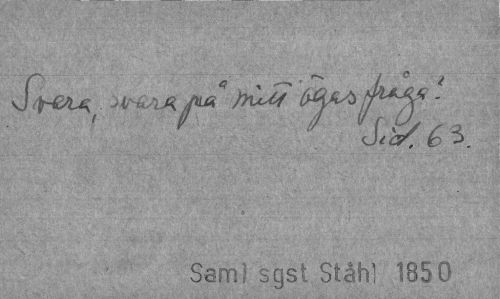 Svara, svara på mitt ögas fråga!
Sid. 63.
Saml sgst Ståhl 1850